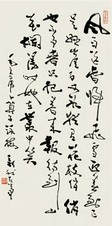 风雨送春归飞雪迎春到已是悬
崖百丈冰犹有花枝俏俏
也不争春只把春来报待到
山花烂漫时她在丛中笑
毛主席卜算子咏梅